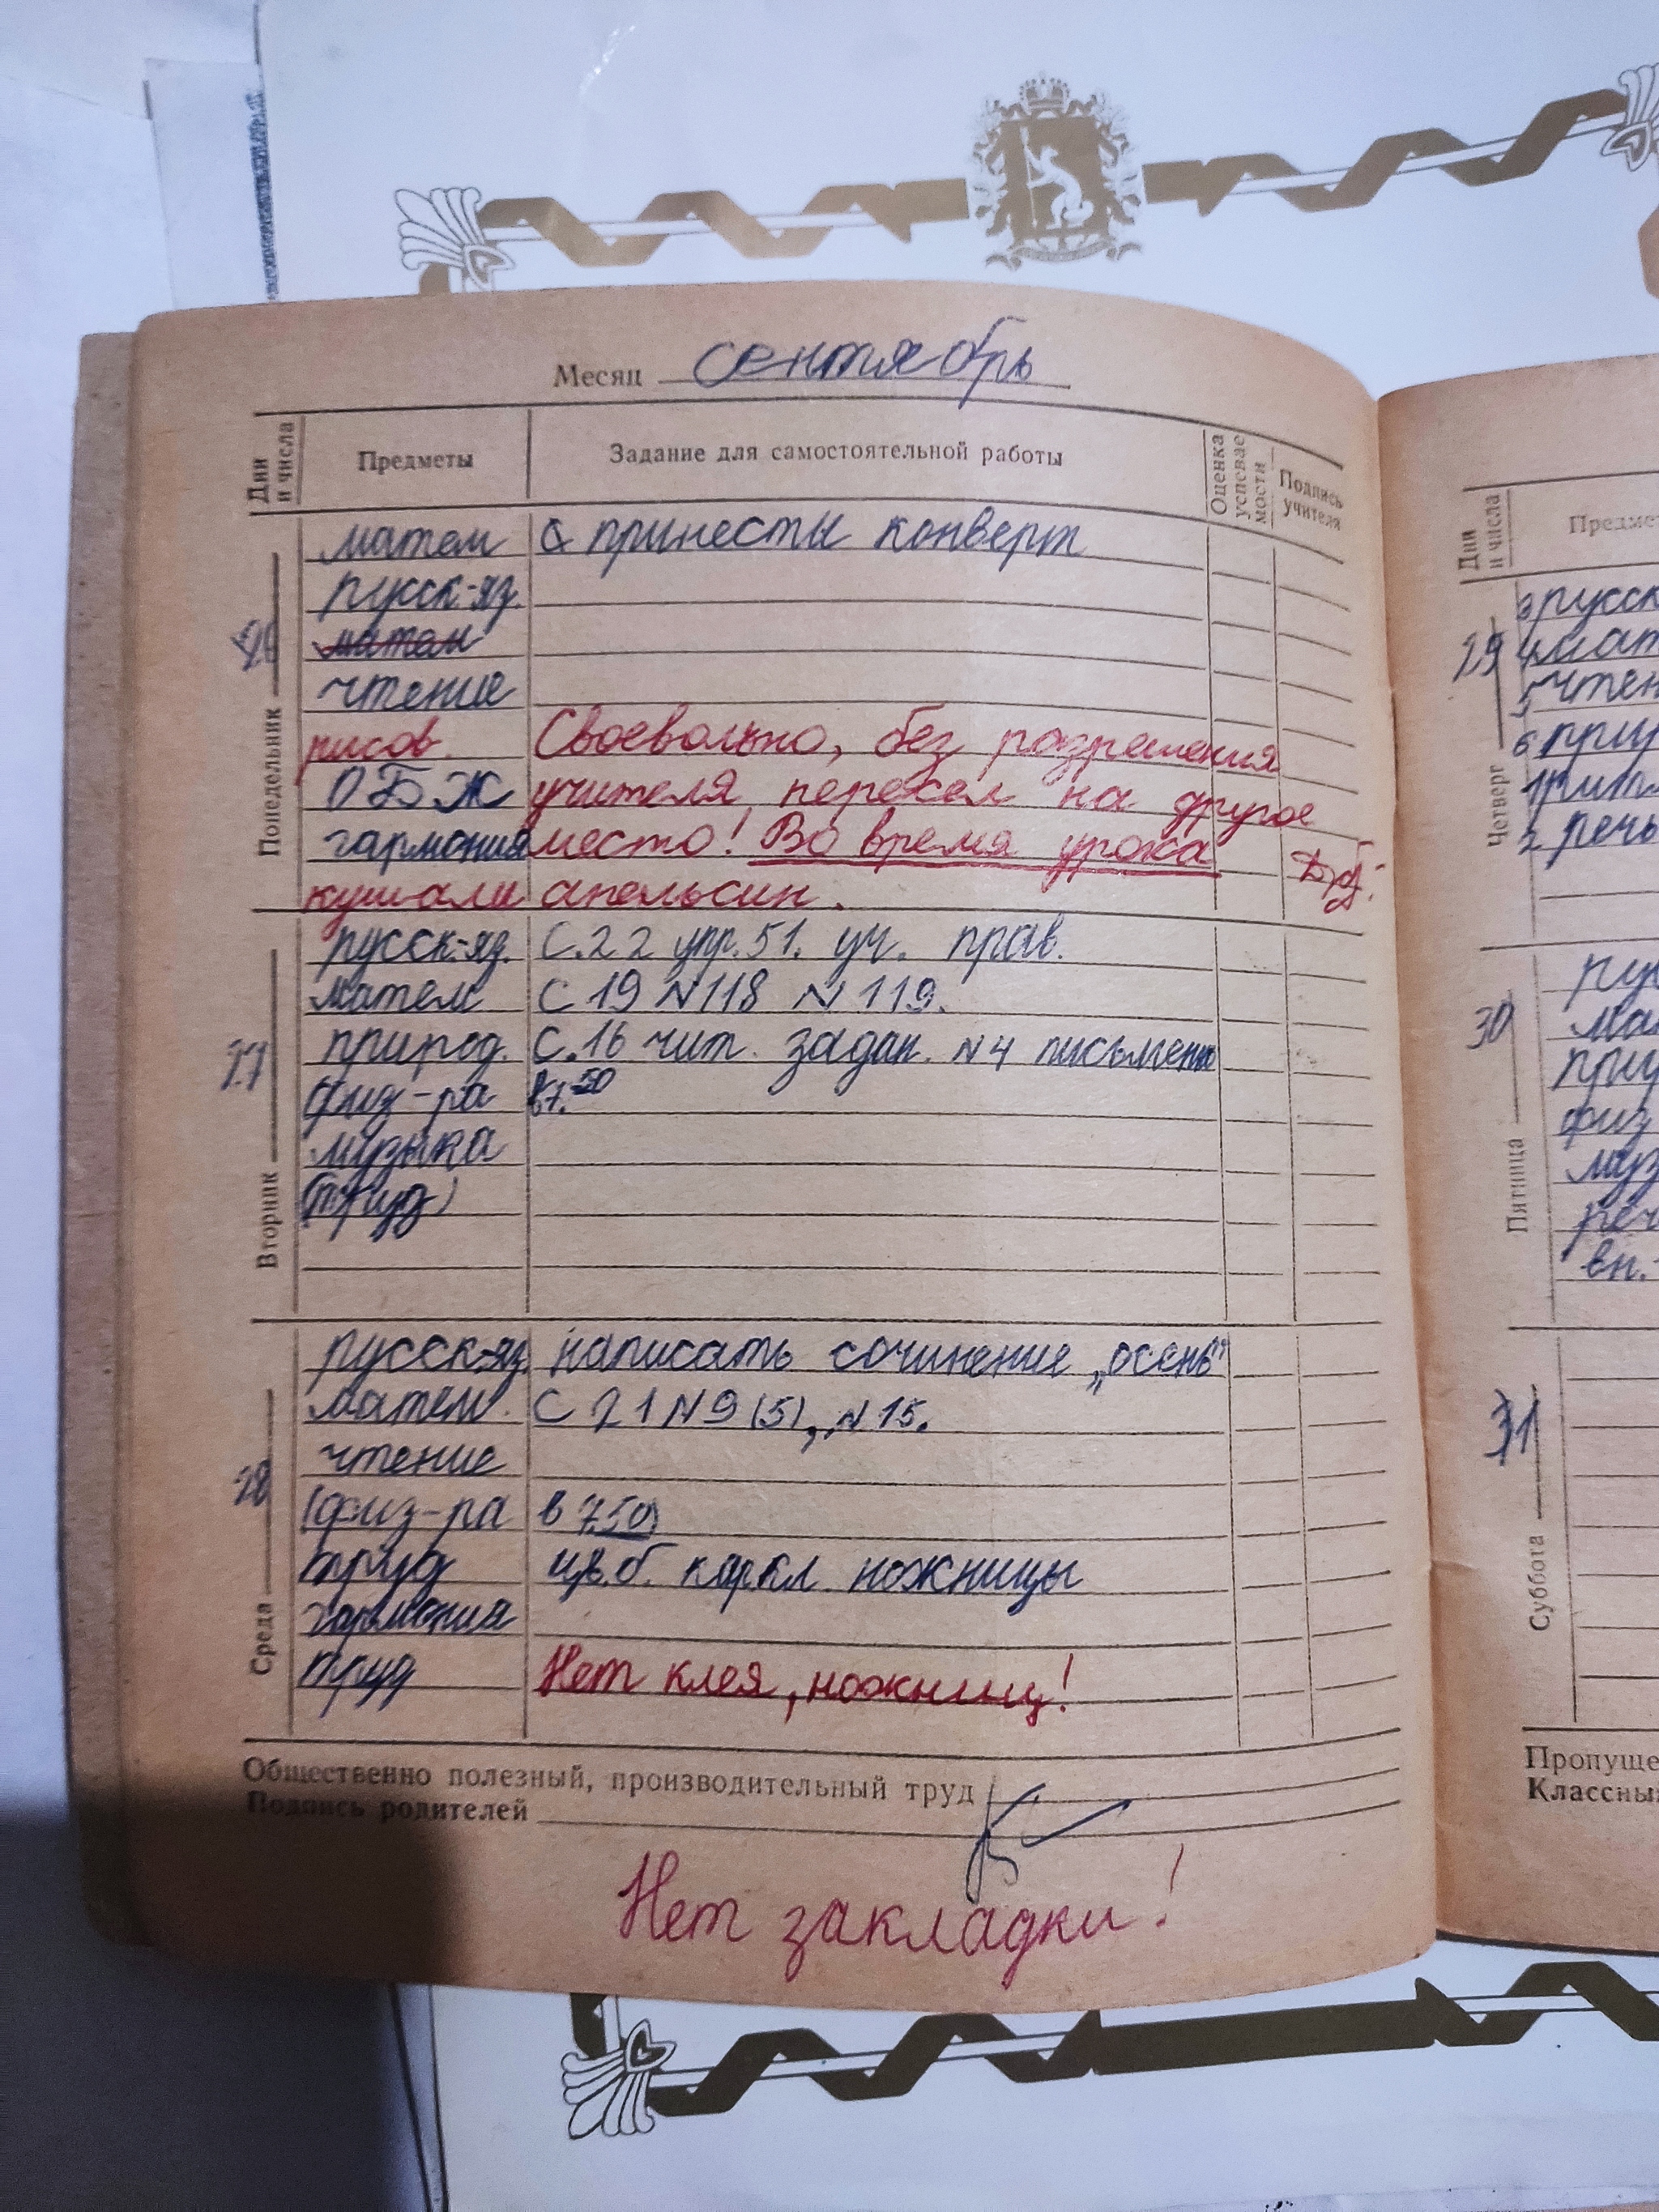 Месяц сентябрь
Дни и числа Предметы Задание для самостоятельной работы Оценка успевае мости Подпись учителя
Понедельник 26
матем принесты конверт
русск-яз.
матем
чтение
рисов. Своевольно, без разрешения
ОБЖ учителя пересел на другое
гармония место! Во время урока
кушали апельсин.
Вторник 27
русск-яз. С.22 упр.51. уч. прав.
матем С 19 N118 N119.
природ. С.16 чит. задан. N4 письменно
физ-ра в 7.50
музыка
(труд)
Среда 28
русск-яз. написать сочинение „осень"
матем. С 21 N9(5), N15.
чтение
(физ-ра в 7.50)
труд цв.б. каркл. ножницы
гармония
труд Нет клея, ножниц!
Общественно полезный, производительный труд
Подпись родителей
Нет закладки!
Дни и числа Предме
Четверг 29
3 русск
4 мат
5 чтен
6 прир
1 ритм
2 речь
Пятница 30
рус
мат
при
физ
муз
реч
вн.
Суббота 31
Пропуще
Классны